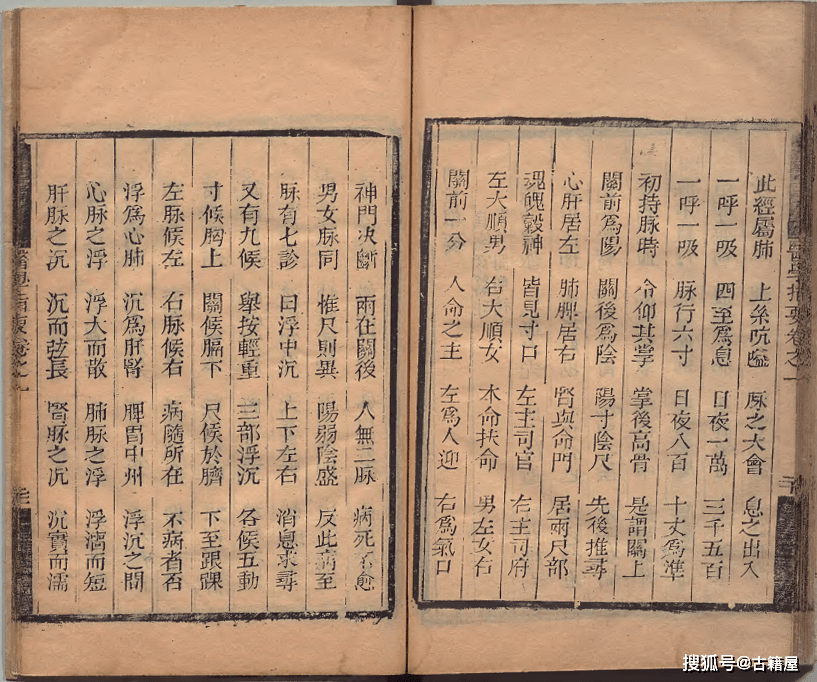 此經屬肺 上系吭嗌 脉之大會 息之出入
一呼一吸 四至爲息 日夜一萬 三千五百
一呼一吸 脉行六寸 日夜八百 十丈爲準
初持脉時 令仰其掌 掌後高骨 是謂關上
關前爲陽 關後爲陰 陽寸陰尺 先後推尋
心肝居左 肺脾居右 腎與命門 居兩尺部
魂魄穀神 皆見寸口 左主司官 右主司府
左大順男 右大順女 本命扶命 男左女右
關前一分 人命之主 左爲人迎 右爲氣口
神門决斷 兩在關後 人無二脉 病死不愈
男女脉同 惟尺則異 陽弱陰盛 反此病至
脉有七診 曰浮中沉 上下左右 消息求尋
又有九候 舉按輕重 三部浮沉 各候五動
寸候胸上 關候膈下 尺候於臍 下至跟踝
左脉候左 右脉候右 病隨所在 不病者否
浮爲心肺 沉爲肝腎 脾胃中州 浮沉之間
心脉之浮 浮大而散 肺脉之浮 浮濇而短
肝脉之沉 沉而弦長 腎脉之沉 沉實而濡
醫學指要卷之一
搜狐号@古籍屋